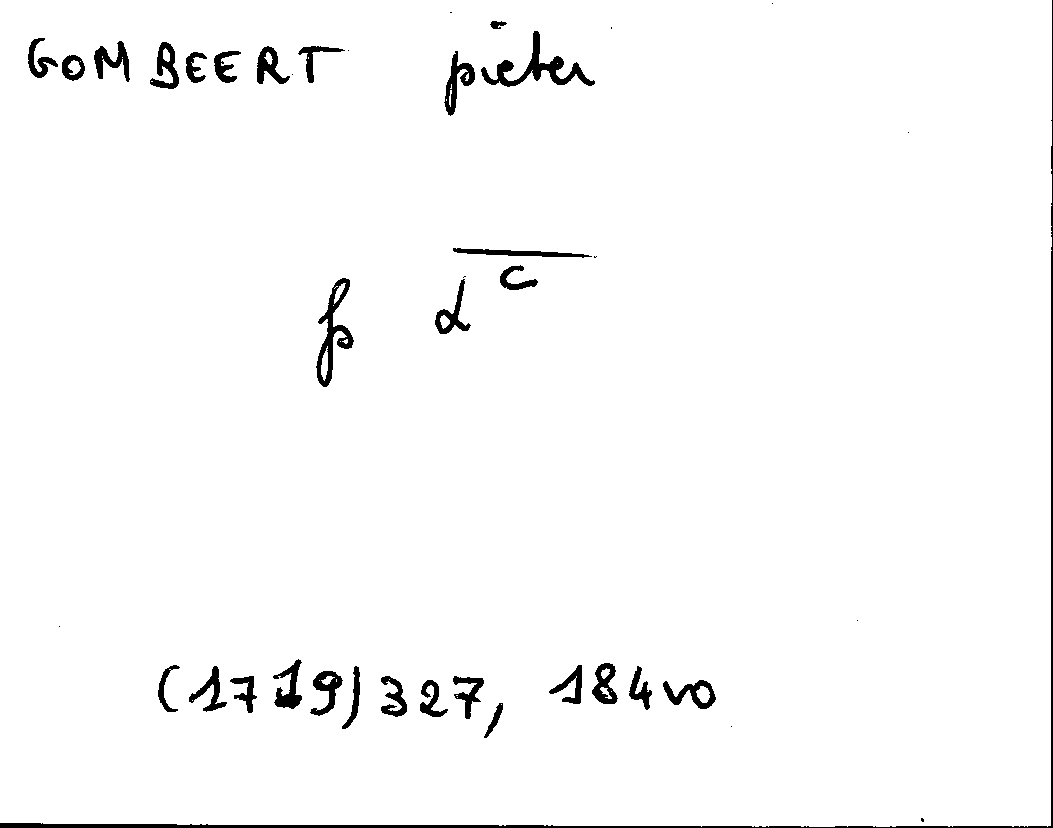 GOMBEERT pieter
fs d c
(1719) 327, 184vo